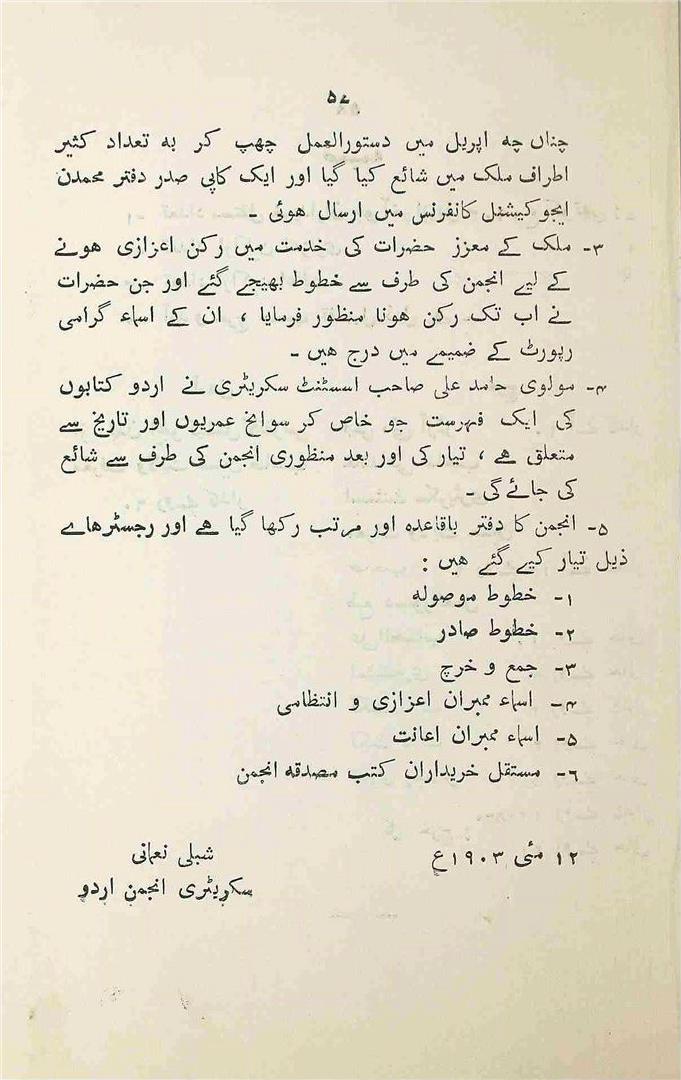 ۵۷
چناں چہ اپریل میں دستورالعمل چھپ کر بہ تعداد کثیر
اطراف ملک میں شائع کیا گیا اور ایک کاپی صدر دفتر محمڈن
ایجوکیشنل کانفرنس میں ارسال ہوئی ۔
۳- ملک کے معزز حضرات کی خدمت میں رکن اعزازی ہونے
کے لیے انجمن کی طرف سے خطوط بھیجے گئے اور جن حضرات
نے اب تک رکن ہونا منظور فرمایا ، ان کے اسماء گرامی
رپورٹ کے ضمیمے میں درج ہیں ۔
۴- مولوی حامد علی صاحب اسسٹنٹ سکریٹری نے اردو کتابوں
کی ایک فہرست جو خاص کر سوانح عمریوں اور تاریخ سے
متعلق ہے ، تیار کی اور بعد منظوری انجمن کی طرف سے شائع
کی جائے گی ۔
۵- انجمن کا دفتر باقاعدہ اور مرتب رکھا گیا ہے اور رجسٹرہاے
ذیل تیار کیے گئے ہیں :
۱- خطوط موصولہ
۲- خطوط صادر
۳- جمع و خرچ
۴- اسماء ممبران اعزازی و انتظامی
۵- اسماء ممبران اعانت
۶- مستقل خریداران کتب مصدقہ انجمن
۱۲ مئی ۱۹۰۳ع
شبلی نعمانی
سکریٹری انجمن اردو